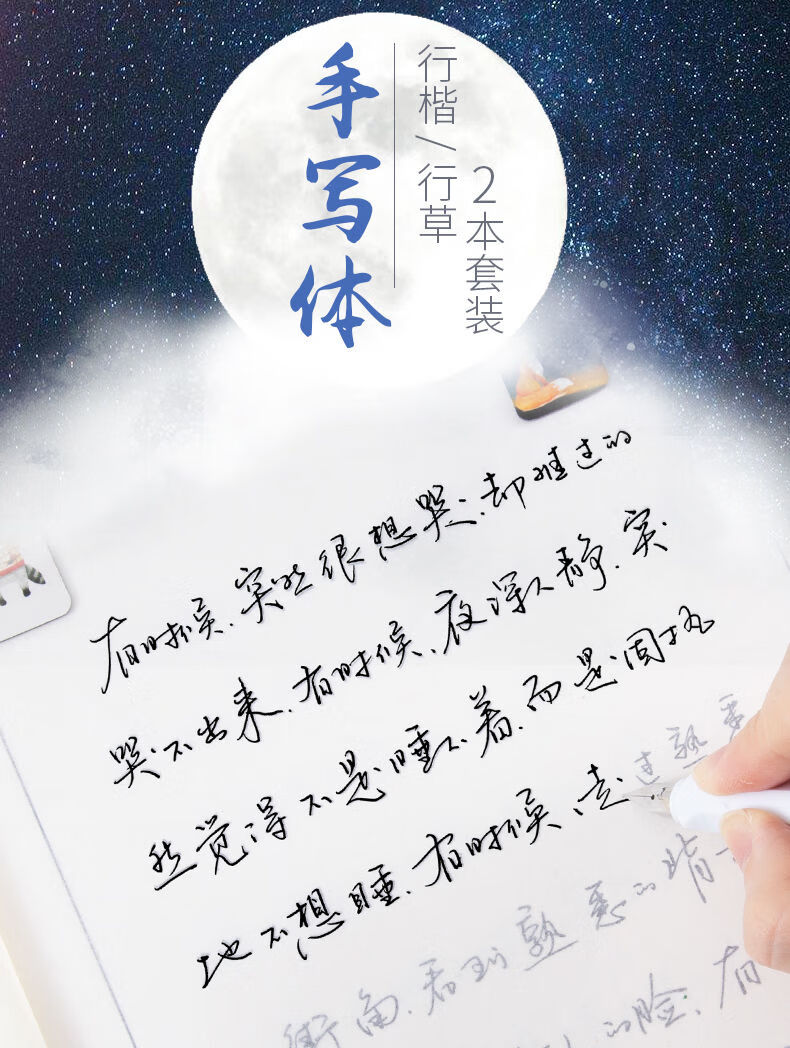 手写体
行楷/行草
2本套装
有时候、突然很想哭,却难过的
哭不出来、有时候、夜深人静、突
然觉得不是睡不着,而是固执
地不想睡、有时候、走过熟悉
街角、看到熟悉的背
的脸、有